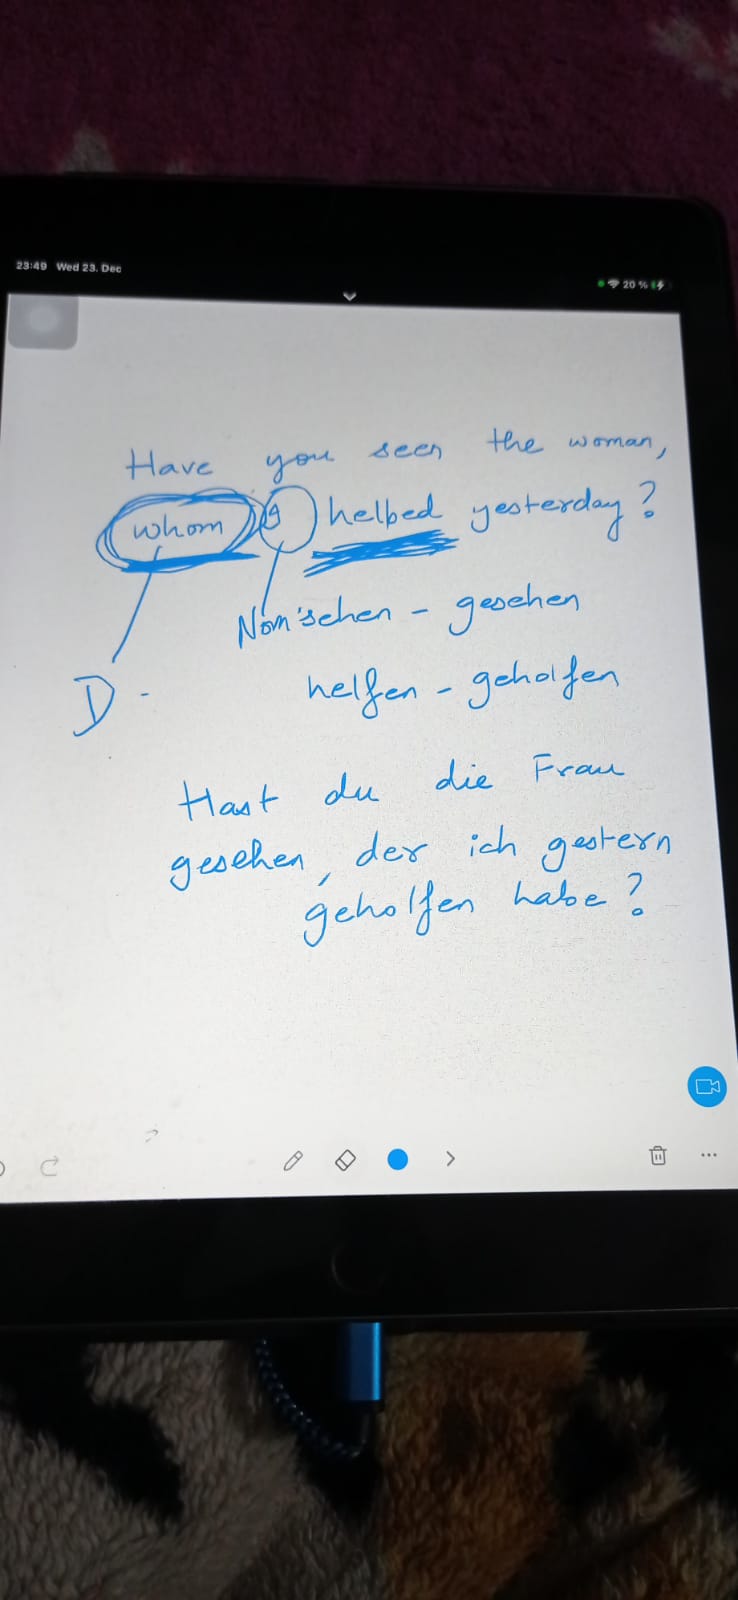 23:49 Wed 23. Dec
20 %
Have you seen the woman,
whom I helbed yesterday?
Nom sehen - gesehen
D - helfen - geholfen
Hast du die Frau
gesehen, der ich gestern
geholfen habe?